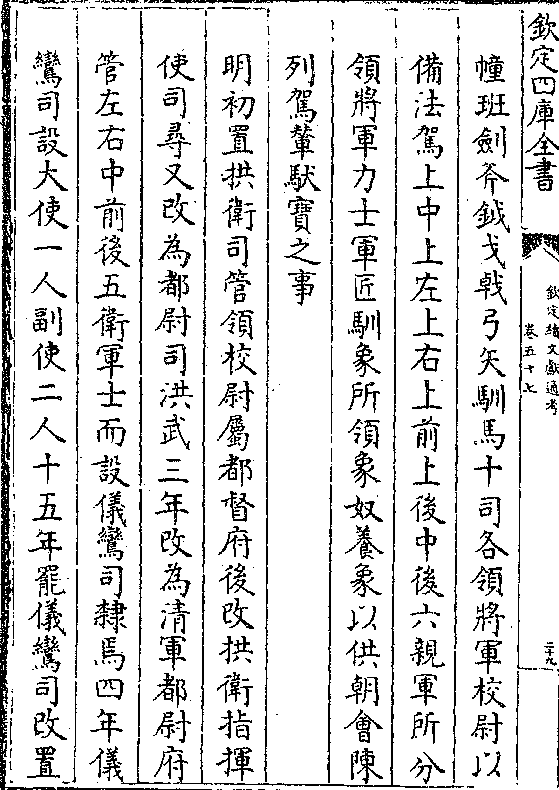 欽定四庫全書
欽定續文獻通考
卷五十七
二十九
幢班劍斧鉞戈戟弓矢馴馬十司各領將軍校尉以
備法駕上中上左上右上前上後中後六親軍所分
領將軍力士軍匠馴象所領象奴養象以供朝會陳
列駕輦馱寶之事
明初置拱衛司管領校尉屬都督府後改拱衛指揮
使司尋又改為都尉司洪武三年改為清軍都尉府
管左右中前後五衛軍士而設儀鸞司隸焉四年儀
鸞司設大使一人副使二人十五年罷儀鸞司改置